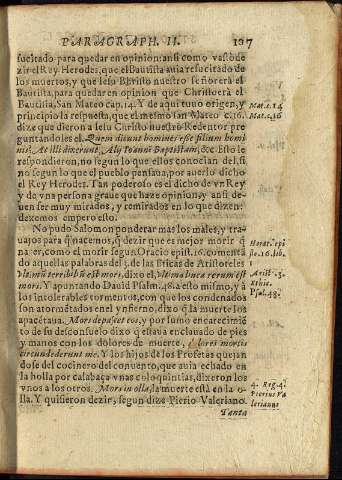 PARAGRAPH. II. 107
sucitado para quedar en opinion: ansi como vuestro de
zir el Rey Herodes, que el Bautista auia resucitado de
los muertos, y que Iesu Christo nuestro señor era el
Bautista, para quedar en opinion que Christo era el
Bautista, San Mateo cap. 14. Y de aqui tuuo origen, y
principio la respuesta, que el mesmo san Mateo c. 16.
dize que dieron a Iesu Christo nuestro Redentor pre
guntandoles el. Quem dicunt homines esse filium homi
nis? At illi dixerunt, Alij Ioannẽ Baptistam, &c. Esto le
respondieron, no segun lo que ellos conocian del, si
no segun lo que el pueblo pensaua, por auerlo dicho
el Rey Herodes. Tan poderoso es el dicho de vn Rey
y de vna persona graue que haze opinion, y ansi de-
uen ser muy mirados, y remirados en lo que dizen:
dexemos empero esto.
No pudo Salomon ponderar mas los males, y tra-
uajos para q̃ nacemos, q̃ dezir que es mejor morir q̃
nazer, como el morir segun Oracio epist. 16. comenta
do aquellas palabras del 3. de las Eticas de Aristoteles
Vltimũ terribiliũ est mors, dixo el, vltima linea rerum est
mors. Y apuntando Dauid Psalm. 48. a esto mismo, y à
los intolerables tormentos, con que los condenados
son atormẽtados en el ynfierno, dixo q̃ la muerte los
apacẽtaua. Mors depascet eos, y por sumo encarecimiẽ
to de su desconsuelo dixo q̃ estaua enclauado de pies
y manos con los dolores de muerte, dolores mortis
circundederunt me. Y los hijos de los Profetas quejan
dose del cocinero del conuento, que auia echado en
la holla por calabaça vnas coloquintias, dixeron los
vnos a los otros. Mors in olla, la muerte està en la o-
lla. Y quisieron dezir, segun dize Pierio Valeriano.
Tanta
Mat. c. 14
Mat. c. 16
Horat. epi
st. 16. lib.
Arist. 3.
Ethic.
Psal. 48.
4. Reg. 4.
Pierius Va
lerianus